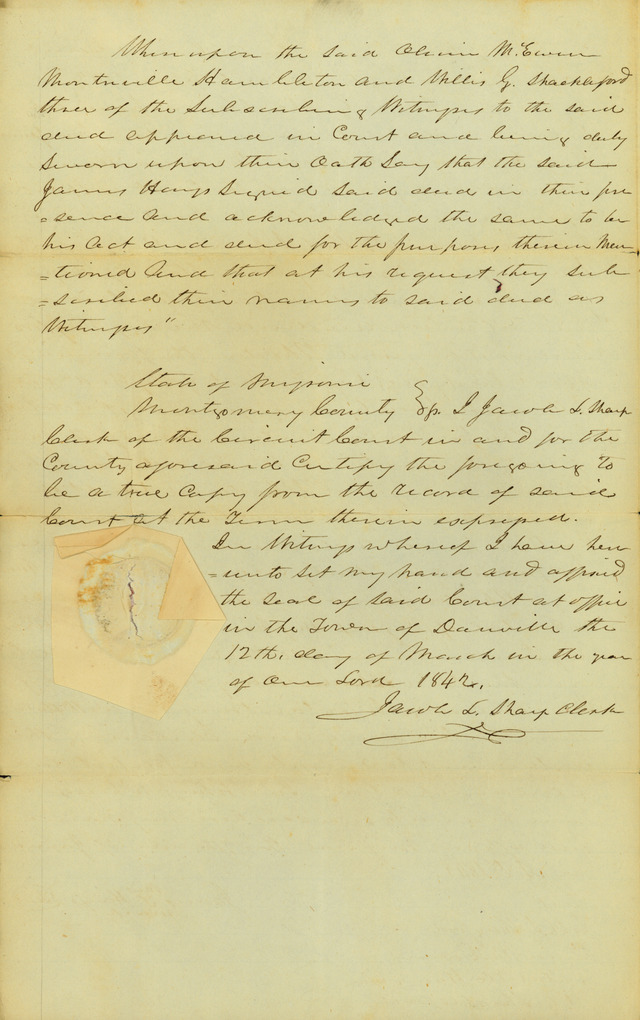 Whereupon the said Oliver McEwen
Montville Hambleton and Willis G. Shackleford
three of the Subscribing Witnesses to the said
deed appeared in Court and being duly
Sworn upon their Oath Say that the said
James Hays Signed said deed in their pre
=sence and acknowledged the same to be
his act and deed for the purposes therein Men
=tioned and that at his request they sub
=scribed their names to said deed as
Witnesses"
State of Missouri
Montgomery County } Ss. I Jacob L. Sharp
Clerk of the Circuit Court in and for the
County aforesaid Certify the foregoing to
be a true Copy from the record of said
Court at the Term therein expressed.
In Witness whereof I have here
=unto set my hand and affixed
the seal of said Court at office
in the Town of Danville the
12th. day of March in the year
of our Lord 1842.
Jacob L. Sharp Clerk